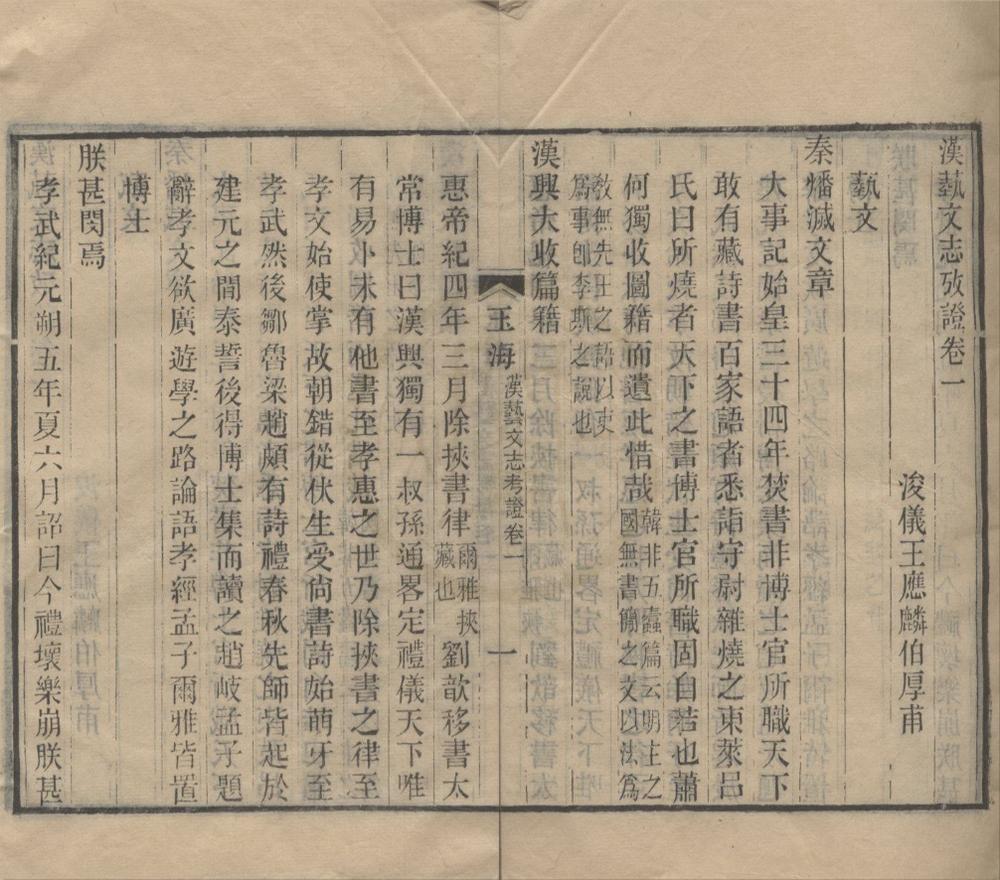 漢藝文志攷證卷一
浚儀王應麟伯厚甫
藝文
秦燔滅文章
大事記始皇三十四年焚書非博士官所職天下
敢有藏詩書百家語者悉詣守尉雜燒之東萊呂
氏曰所燒者天下之書博士官所職固自若也蕭
何獨收圖籍而遺此惜哉韓非五蠹篇云明主之
國無書簡之文以法爲
教無先王之語以吏
爲事卽李斯之說也
漢興大收篇籍
玉海 漢藝文志考證卷一 一
惠帝紀四年三月除挾書律爾雅挾
藏也劉歆移書太
常博士曰漢興獨有一叔孫通畧定禮儀天下唯
有易卜未有他書至孝惠之世乃除挾書之律至
孝文始使掌故朝錯從伏生受尙書詩始萌牙至
孝武然後鄒魯梁趙頗有詩禮春秋先師皆起於
建元之間泰誓後得博士集而讀之趙岐孟子題
辭孝文欲廣遊學之路論語孝經孟子爾雅皆置
博士
朕甚閔焉
孝武紀元朔五年夏六月詔曰今禮壞樂崩朕甚